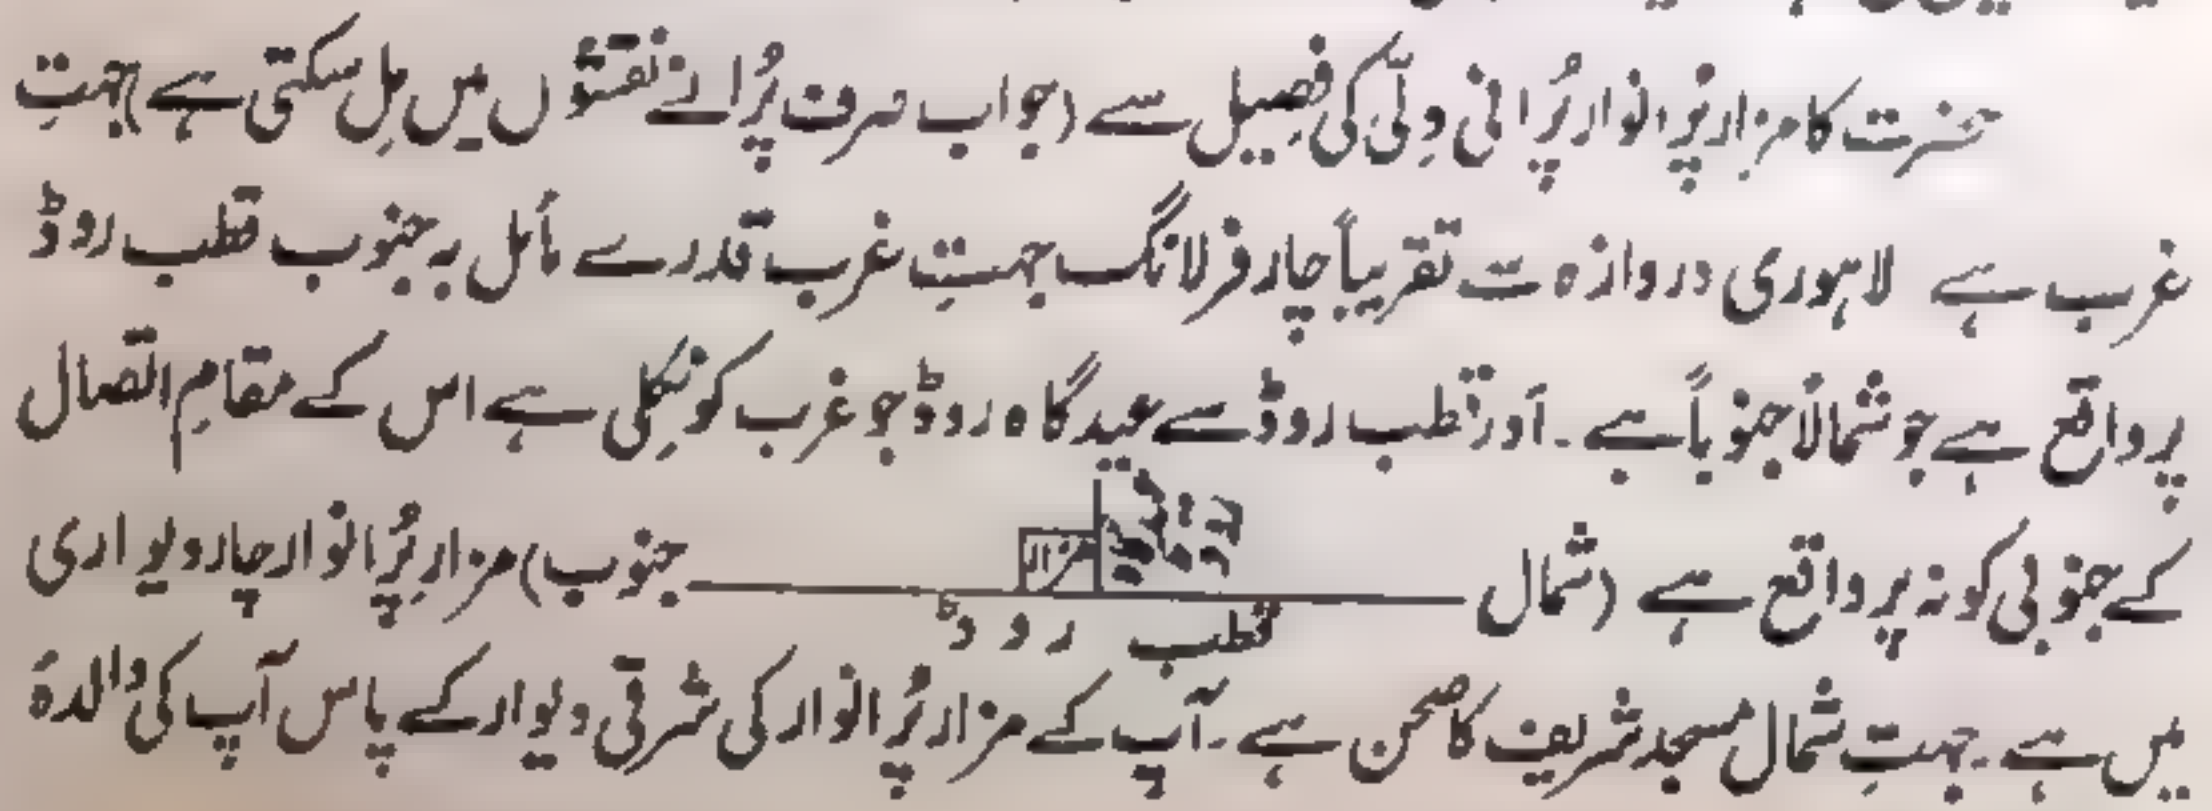 حضرت کا مزار پُر انوار پُرانی دِلّی کی فصِیل سے (جو اب صرف پُرانے نقشوں میں مِل سکتی ہے) جہتِ
غرب ہے لاہوری دروازہ سے تقریباً چار فرلانگ جہتِ غرب قدرے مائل بہ جنوب قطب روڈ
پر واقع ہے جو شمالاً جنوباً ہے ۔ اَور قطب روڈ سے عیدگاہ روڈ جو غرب کو نِکلی ہے اس کے مقامِ اتّصال
کے جنوبی کونہ پر واقع ہے (شمال
مزار
جنوب) مزارِ پُر انوار چار دیواری
قطب روڈ
میں ہے ۔ جہتِ شمال مسجد شریف کا صحن ہے ۔ آپ کے مزار پُر انوار کی شرقی دیوار کے پاس آپ کی والدہ